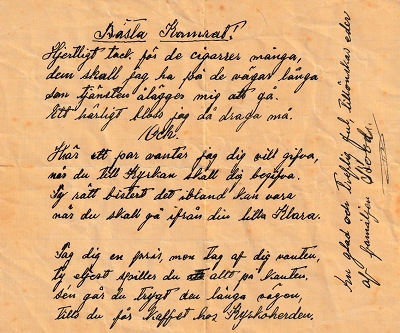 Bästa Kamrat!
Hjertligt tack för de cigarrer många,
dem skall jag ha på de vägar långa
som tjänsten ålägges mig att gå.
Ett härligt bloss jag då draga må.
Och.
Här ett par vantar jag dig vill gifva,
når du till Kyrkan skall dig begifva.
Ty rätt bistert det ibland kan vara
när du skall gå ifrån din lilla Klara.
Tag dig en pris, men tag af dig vanten,
ty eljest spiller du allt på kanten.
Sen går du trygt den långa vägen,
tills du får kaffet hos Kyrkoherden.
En glad och treflig jul, tillönskar eder
af familjen